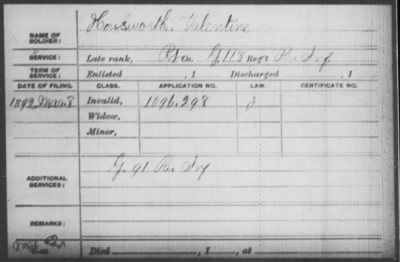 Housworth, Valentine
NAME OF SOLDIER:
SERVICE: Late rank, Pvt Co. G, 118 Reg't Pa. Inf
TERM OF SERVICE: Enlisted , 1 Discharged , 1
DATE OF FILING. CLASS. APPLICATION NO. LAW. CERTIFICATE NO.
1892 Mar 8 Invalid, 1096,298 J
Widow,
Minor,
ADDITIONAL SERVICES: G. 91 Pa. Inf
REMARKS:
Died , 1 , at